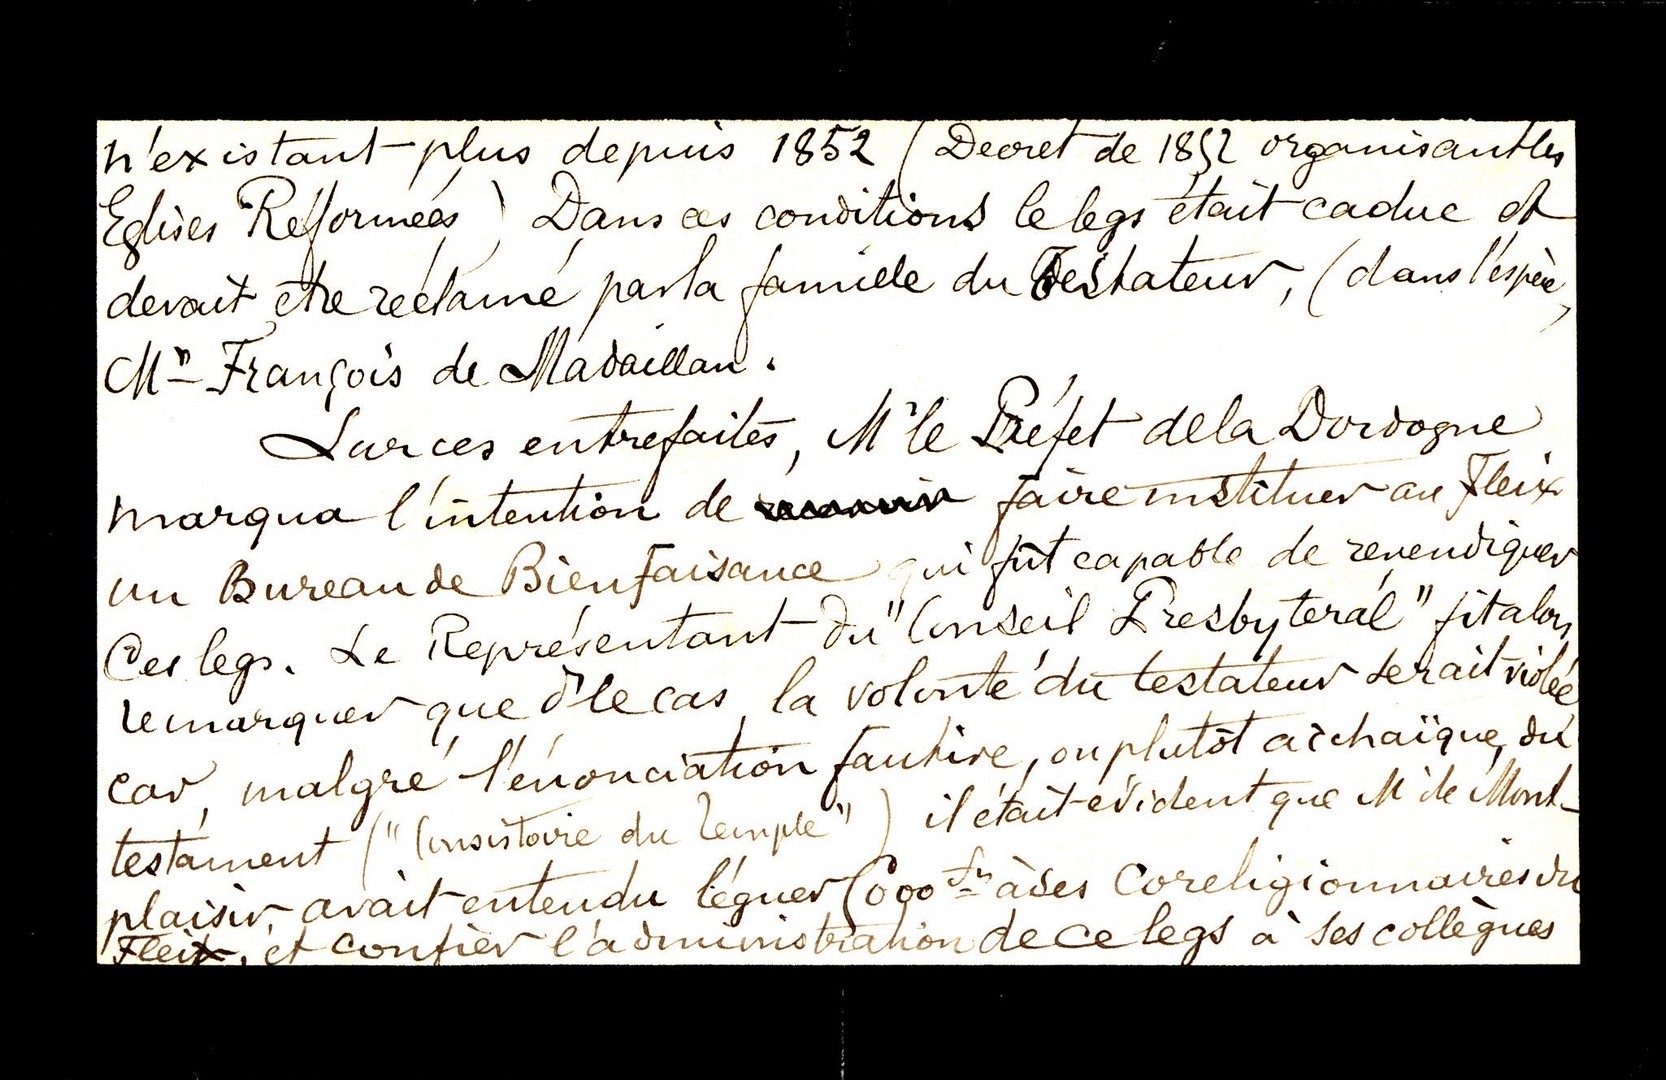 n'existant plus depuis 1852 (Decret de 1852 organisant les
Eglises Réformées) Dans ces conditions le legs était caduc et
devait etre réclamé par la famille du Testateur, (dans l'espèce,
Mr François de Madaillan.
Sur ces entrefaites, Mr le Préfet de la Dordogne
marqua l'intention de faire instituer au Fleix
un Bureau de Bienfaisance qui fût capable de revendiquer
Ces legs. Le Représentant du "Conseil Presbytéral" fit alors
remarquer que ds le cas, la volonté du testateur serait violée
car, malgré l'énonciation fautive, ou plutôt archaïque, du
testament ("Consistoire du Temple") il était évident que Mr de Mont-
plaisir, avait entendu léguer 6000 frs à ses Coreligionnaires du
Fleix, et confier l'administration de ce legs à ses collègues